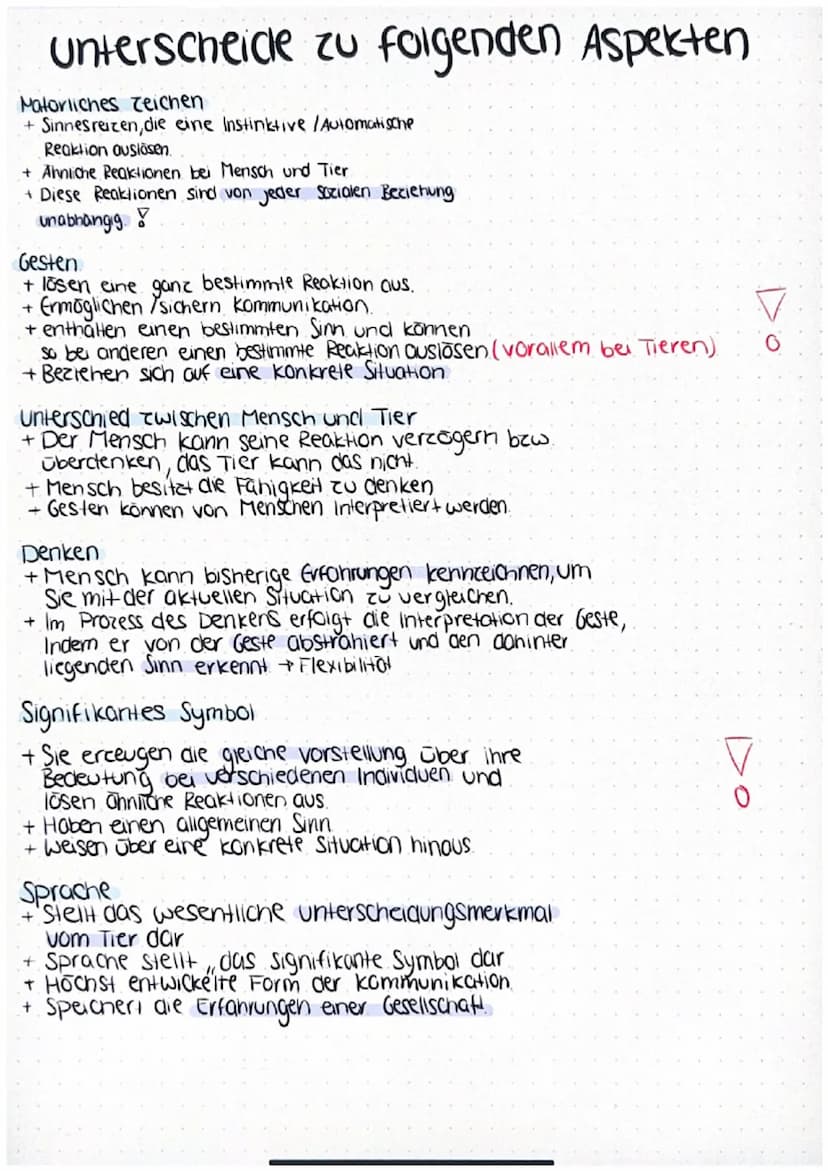 Unterscheide zu folgenden Aspekten
Natürliches Zeichen
+ Sinnesreizen, die eine Instinktive / Automatische
Reaktion auslösen.
+ Ähnliche Reaktionen bei Mensch und Tier
+ Diese Reaktionen sind von jeder Sozialen Beziehung
unabhängig !
Gesten
+ lösen eine ganz bestimmte Reaktion aus.
+ Ermöglichen / sichern Kommunikation.
+ enthalten einen bestimmten Sinn und können
so bei anderen einen bestimmte Reaktion auslösen (vorallem bei Tieren) !
+ Beziehen sich auf eine konkrete Situation
Unterschied zwischen Mensch und Tier
+ Der Mensch kann seine Reaktion verzögern bzw.
überdenken, das Tier kann das nicht.
+ Mensch besitzt die Fähigkeit zu denken
→ Gesten können von Menschen Interpretiert werden.
Denken
+ Mensch kann bisherige Erfahrungen kennzeichnen, um
Sie mit der aktuellen Situation zu vergleichen.
+ Im Prozess des Denkens erfolgt die Interpretation der Geste,
Indem er von der Geste abstrahiert und den dahinter
liegenden Sinn erkennt → Flexibilität
Signifikantes Symbol
+ Sie erzeugen die gleiche Vorstellung über ihre
Bedeutung bei verschiedenen Individuen und
lösen ähnliche Reaktionen aus. !
+ Haben einen allgemeinen Sinn
+ Weisen über eine konkrete Situation hinaus.
Sprache
+ Stellt das wesentliche Unterscheidungsmerkmal
vom Tier dar
+ Sprache stellt „das signifikante Symbol dar
+ Höchst entwickelte Form der Kommunikation.
+ Speichert die Erfahrungen einer Gesellschaft.